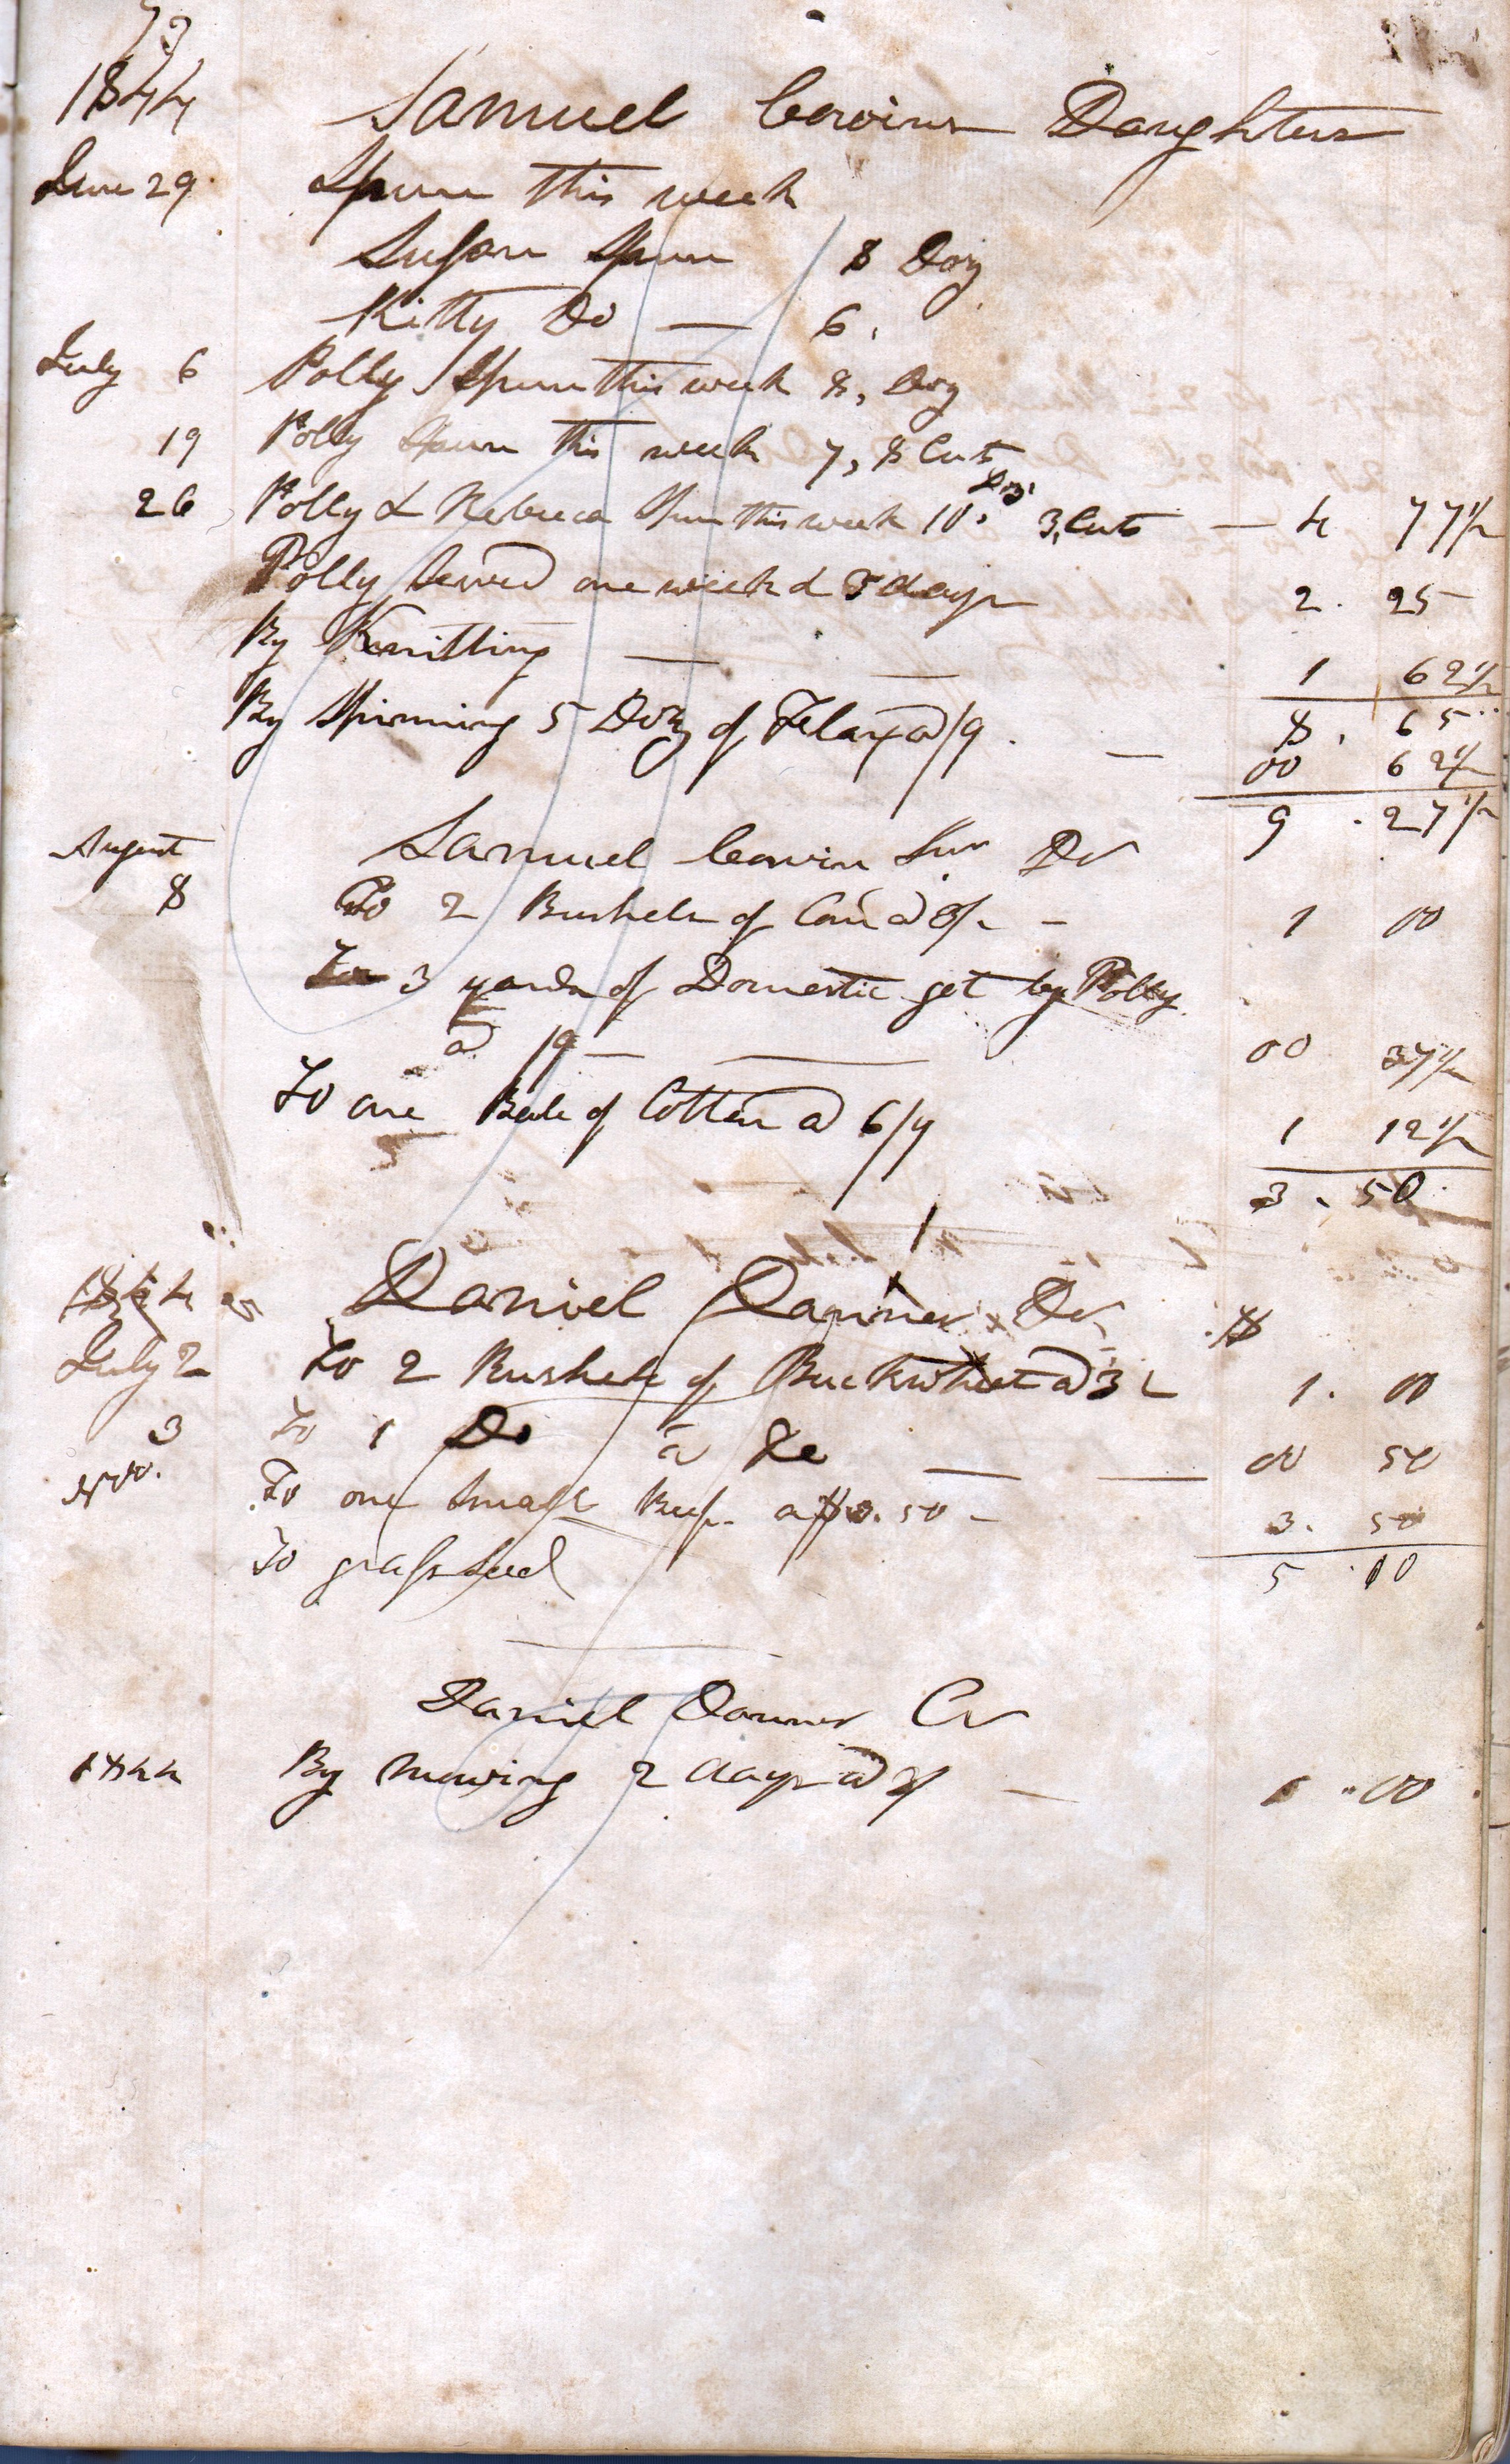 73
1844 Samuel Cowins Daughters
June 29 Spun this week
Susan Spun 8 Doz
Kitty Do — 6.
July 6 Polly Spun this week 8, Doz
19 Polly Spun this week 7, 8 Cuts
26 Polly & Rebecca Spun this week 10, Doz 3, Cuts — 4 77½
Polly Sewed one week & 3 days 2. 25
By Knitting — 1 62½
8. 65
By Spinning 5 Doz of Flax @ /9. — 00 62½
9 .27½
August Samuel Cowin Dr
8 To 2 Bushels of Corn @ — 1 00
To 3 yards of Domestic get by Polly
a /9 — 00 37½
To one Bale of Cotten @ 6/9 1 12½
3. 50
1844 Daniel Danner Dr $
July 2 To 2 Bushels of Buckwheat @ 1. 00
3 To 1 Do a — 00 50
Nov. To one Small Beef. a $3.50 — 3. 50
To grass Seed 5 .00
Daniel Danner Cr
1844 By mowing 2 days @ — 1 .00